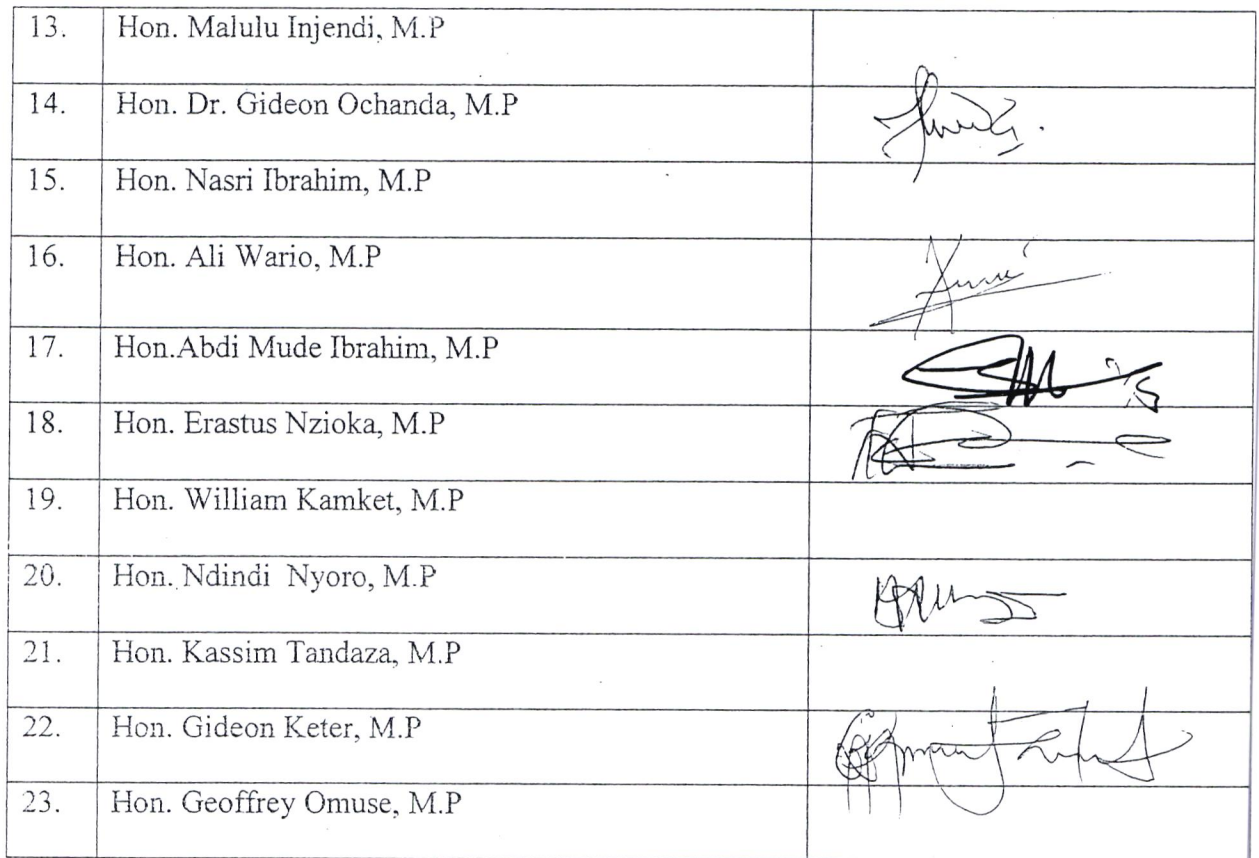 13. Hon. Malulu Injendi, M.P
14. Hon. Dr. Gideon Ochanda, M.P
15. Hon. Nasri Ibrahim, M.P
16. Hon. Ali Wario, M.P
17. Hon.Abdi Mude Ibrahim, M.P
18. Hon. Erastus Nzioka, M.P
19. Hon. William Kamket, M.P
20. Hon. Ndindi Nyoro, M.P
21. Hon. Kassim Tandaza, M.P
22. Hon. Gideon Keter, M.P
23. Hon. Geoffrey Omuse, M.P